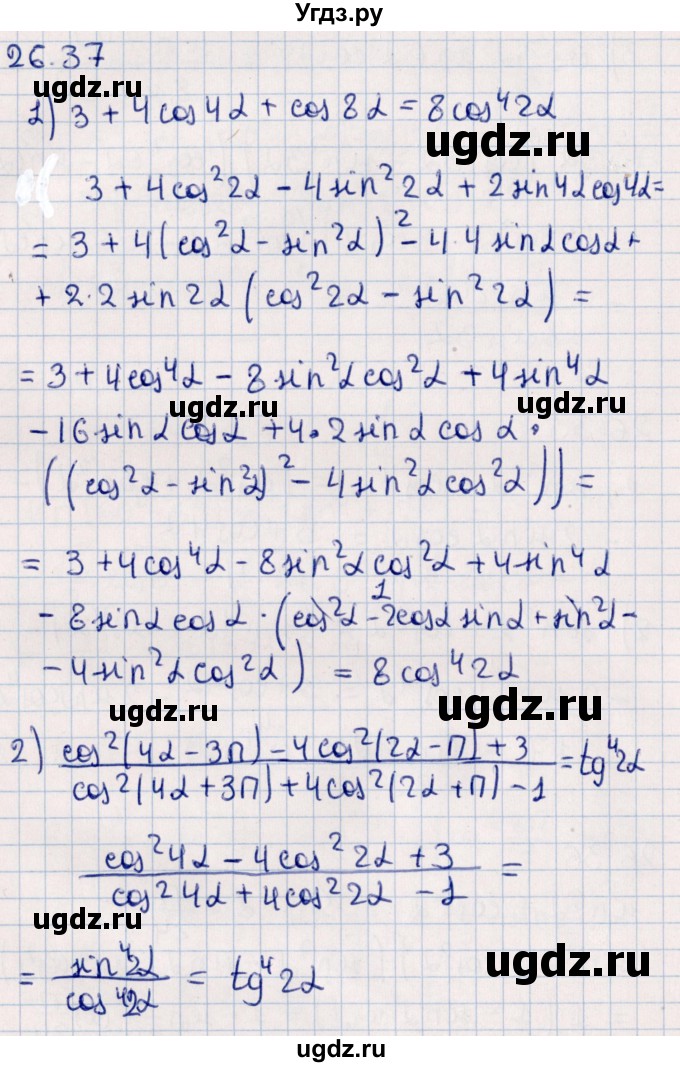 Угдз.ру
26.37
1) 3 + 4 cos 4α + cos 8α = 8 cos⁴ 2α
ugdz.ru ugdz.ru
3 + 4 cos² 2α - 4 sin² 2α + 2 sin 4α cos 4α =
= 3 + 4 (cos² α - sin² α)² - 4·4 sin α cos α +
+ 2·2 sin 2α (cos² 2α - sin² 2α) =
ugdz.ru
= 3 + 4 cos⁴ α - 8 sin² α cos² α + 4 sin⁴ α
ugdz.ru ugdz.ru
- 16 sin α cos α + 4·2 sin α cos α ·
((cos² α - sin² α)² - 4 sin² α cos² α)) =
= 3 + 4 cos⁴ α - 8 sin² α cos² α + 4 sin⁴ α
- 8 sin α cos α · (cos² α - 2 cos α sin α + sin² α -
1
- 4 sin² α cos² α) = 8 cos⁴ 2α
ugdz.ru ugdz.ru
2) cos² (4α - 3π) - 4 cos² (2α - π) + 3
cos² (4α + 3π) + 4 cos² (2α + π) - 1 = tg⁴ 2α
cos² 4α - 4 cos² 2α + 3 =
cos² 4α + 4 cos² 2α - 1
ugdz.ru ugdz.ru
= sin⁴ 2α = tg⁴ 2α
cos⁴ 2α
ugdz.ru